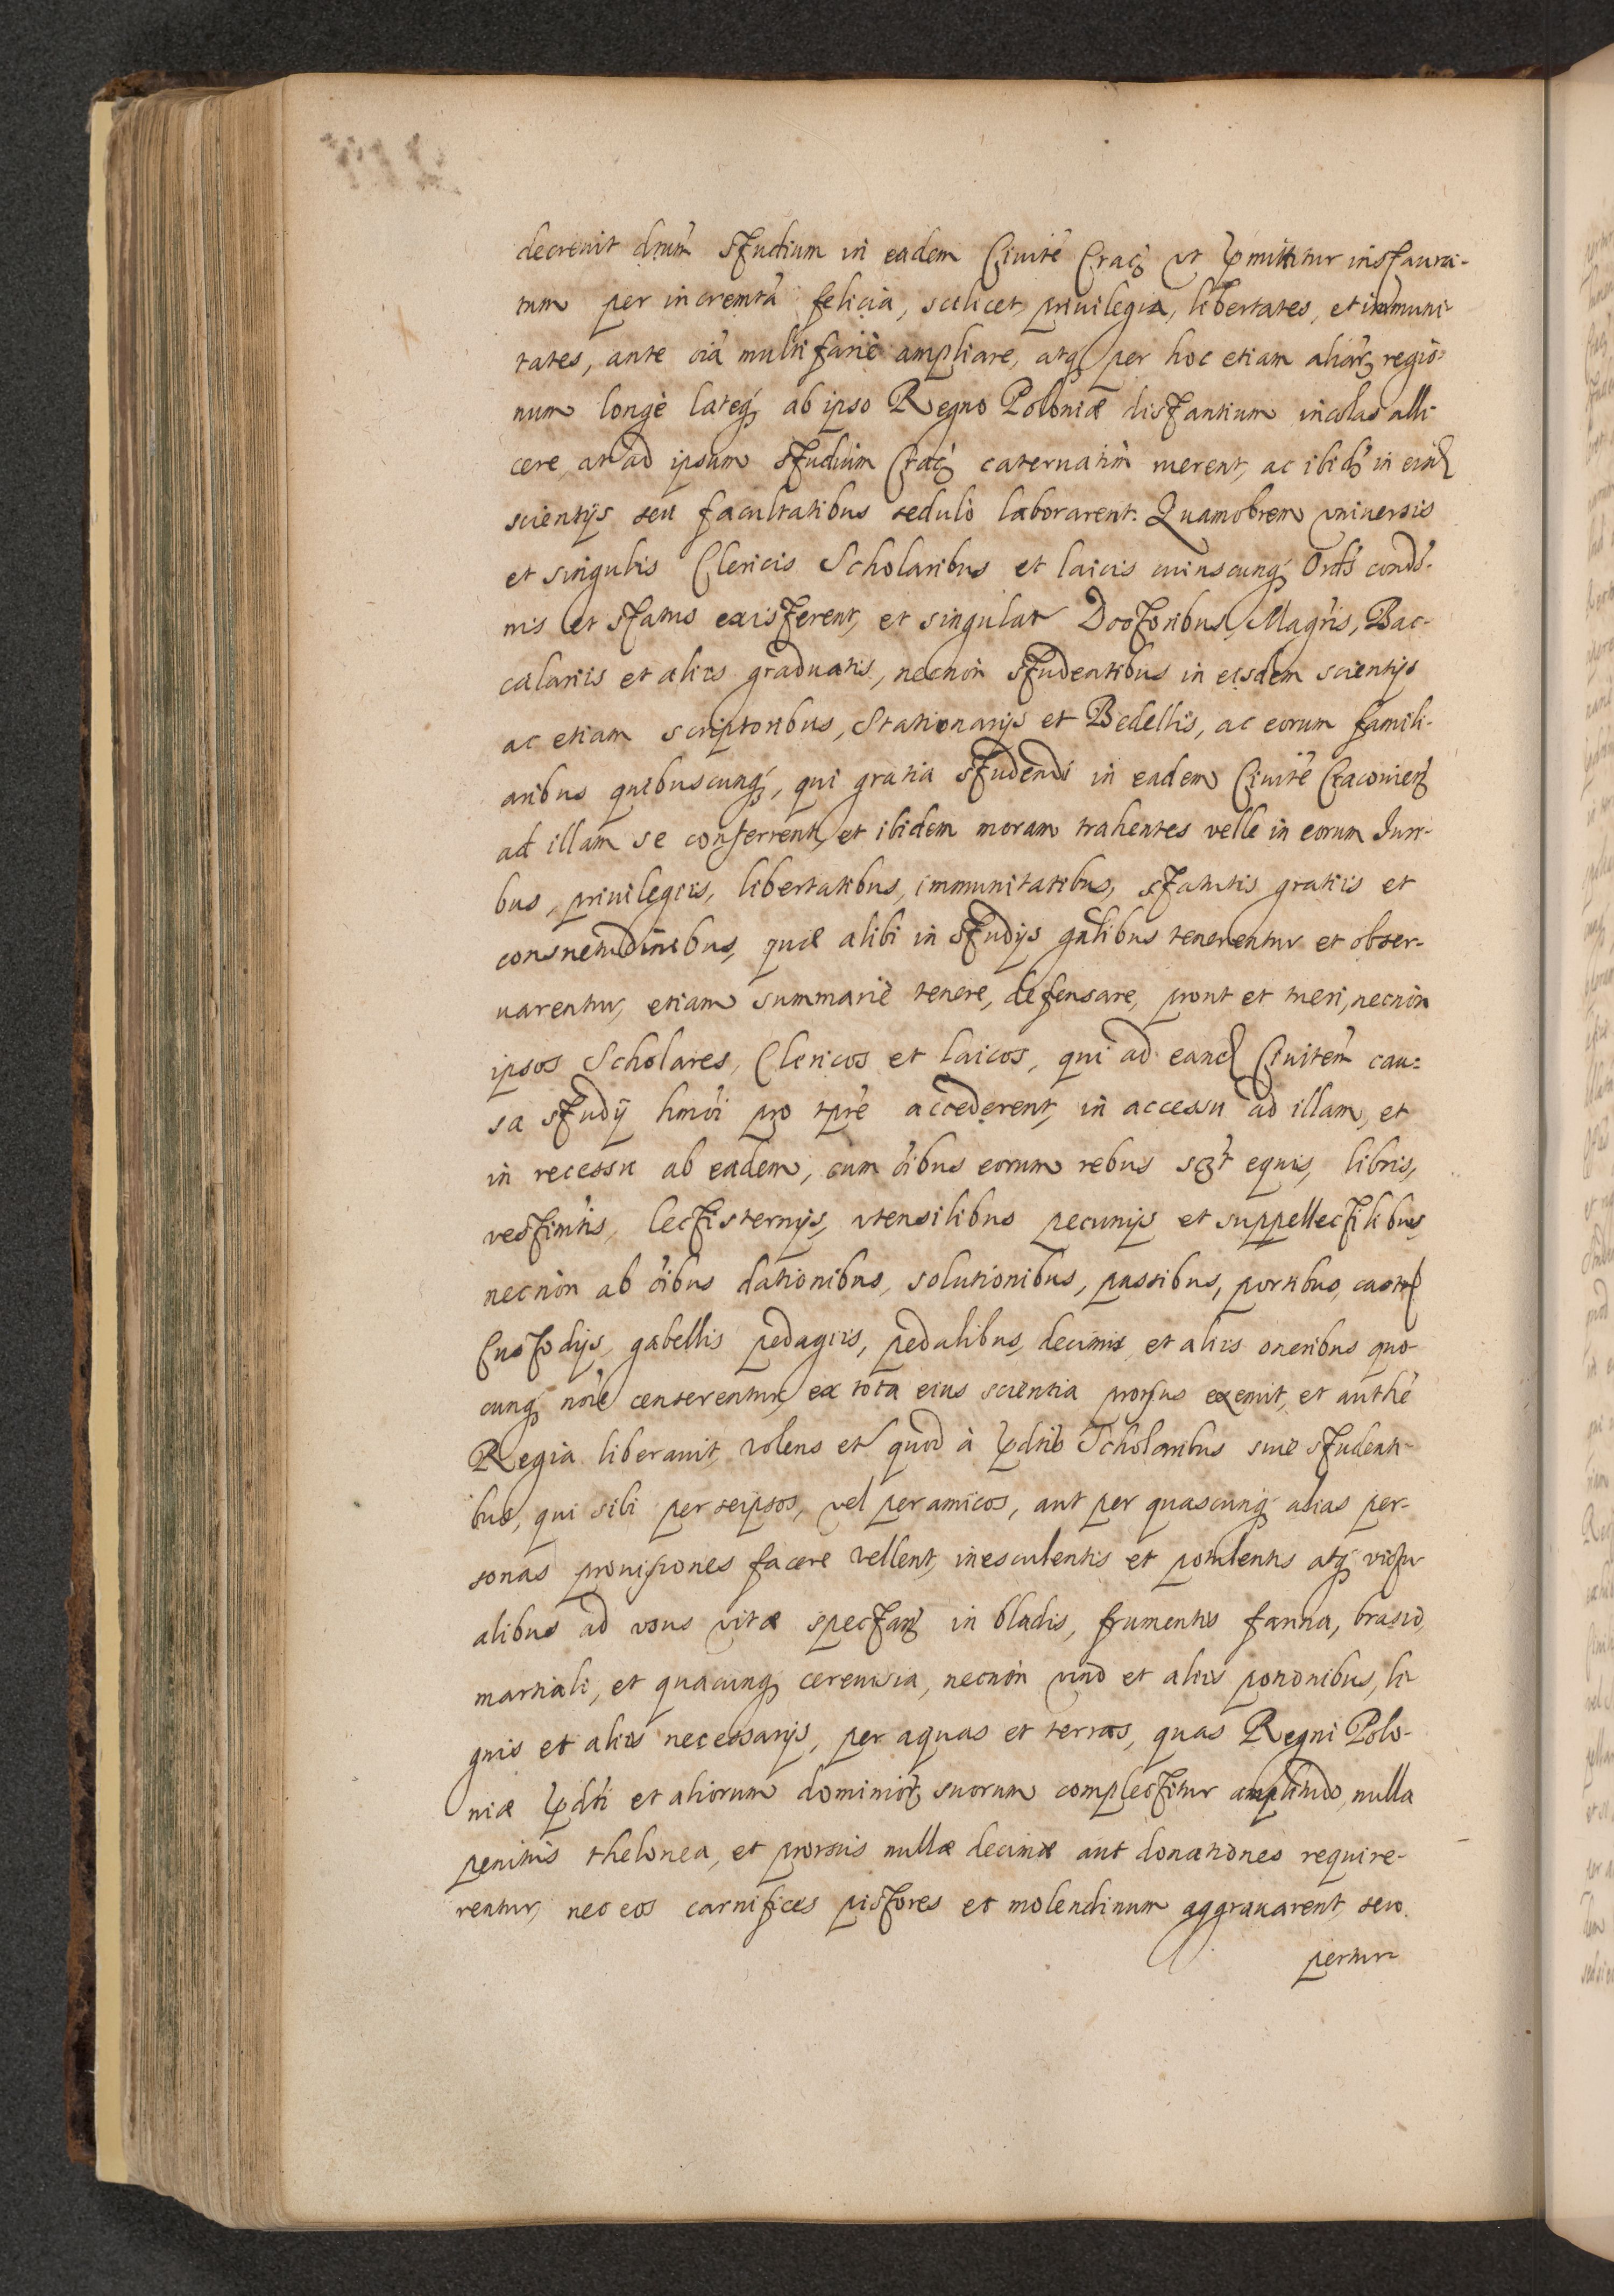 decreuit dictum studium in eadem Ciuitẽ Crac̃ vt p̃mittitur instaura-
tum per incremẽta felicia, scilicet priuilegia, libertates, et immuni-
tates, ante oĩa multifariè ampliare, atq; per hoc etiam aliaꝝ regio-
num longè lateq; ab ipso Regno Poloniæ distantium incolas alli-
cere, at ad ipsum studium Crac̃ caternatim uerent, ac ibid̃ in eisd̃
scientijs seu facultatibus sedulò laborarent. Quamobrem vniuersis
et singulis Clericis Scholaribus et laicis cuiuscunq; Ord̃s condõ-
nis et status existerent, et singularr Doctoribus, Magr̃is, Bac-
calariis et aliis graduatis, necnòn studentibus in eisdem scientijs
ac etiam scriptoribus, Stationarijs et Bedellis, ac eorum famili-
aribus quibuscunq;, qui gratia studendi in eadem Ciuitẽ Cracouieñ
ad illam se conferrent, et ibidem moram trahentes velle in eorum Juri-
bus, priuilegiis, libertatibus, immunitatibus, statutis gratiis et
consuetudinibus, quæ alibi in studijs gñalibus tenerentur et obser-
uarentur, etiam summariè tenere, defensare, prout et tueri, necnòn
ipsos Scholares, Clericos et laicos, qui ad eand̃ Ciuitem̃ cau-
sa studij hmõi pro tpr̃e accederent, in accessu ad illam, et
in recessu ab eadem, cum õibus eorum rebus sc̃t equis, libris,
vestimtis, lectisternijs, vtensilibus pecunijs et suppellectilibus
necnòn ab õibus dationibus, solutionibus, passibus, portibus, castr̃
Custodijs, gabellis pedagiis, pedalibus, decimis, et aliis oneribus quo-
cunq; nõie censerentur, ex tota eius scientia prorsus exemit, et authẽ
Regia liberauit, volens et quod à p̃dtis Scholaribus siue studenti-
bus, qui sibi per seipsos, vel per amicos, aut per quascunq; alias per-
sonas prouisiones facere vellent, in esculentis et potulentis atq; victu-
alibus ad vsus vitæ spectañ in bladis, frumentis farina, brasio,
martiali, et quacunq; cereuisia, necnòn vino et aliis potionibus, li-
gnis et aliis necessarijs, per aquas et terras, quas Regni Polo-
niæ p̃dti et aliorum dominioꝝ suorum complectitur amplitudo, nulla
penitùs thelonea, et prorsùs nullæ decimæ aut donationes require-
rentur, nec eos carnifices pistores et molendinum aggrauarent, seu
pertur-